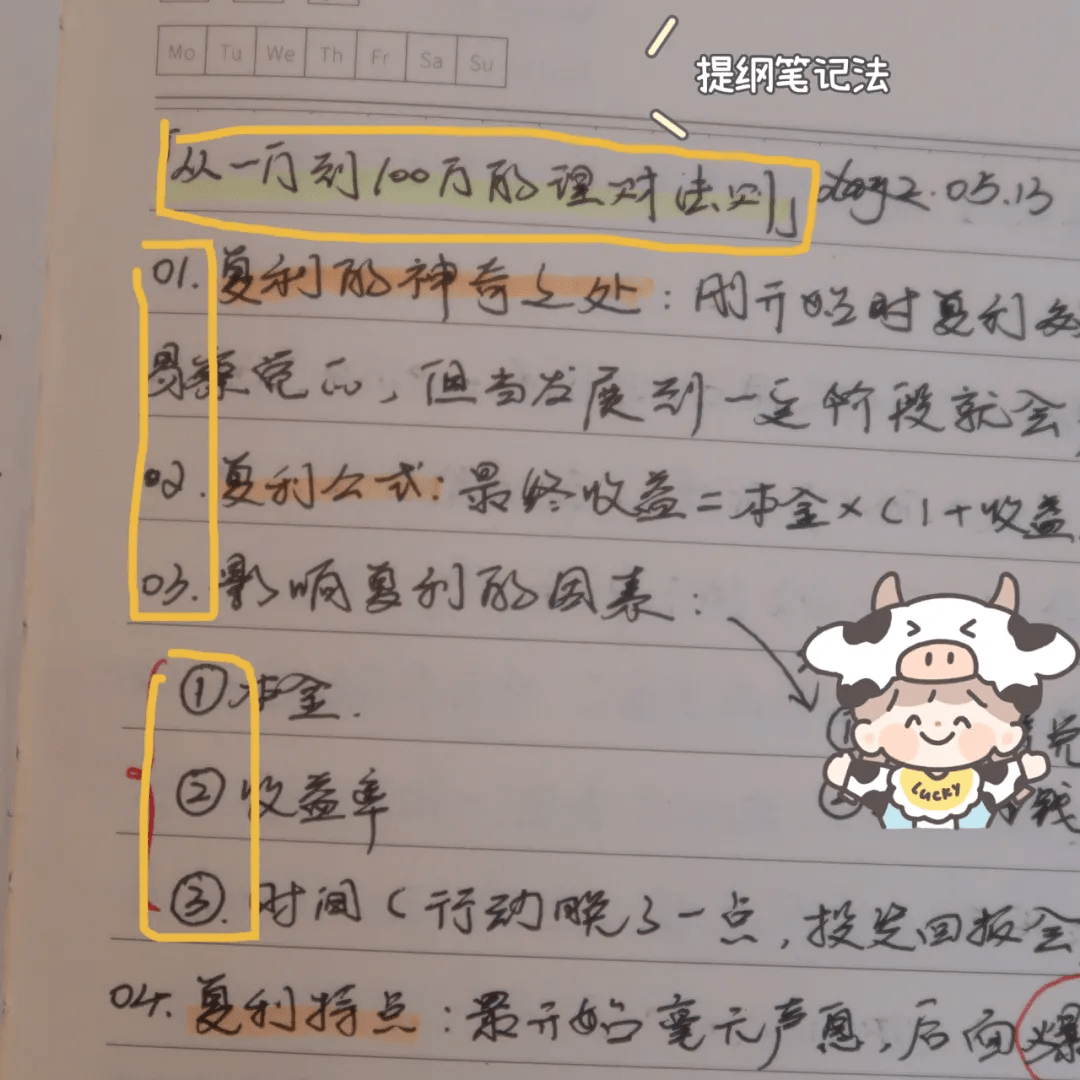 Mo Tu We Th Fr Sa Su
提纲笔记法
「从一万到100万的理财法则」 day2. 05.13
01. 复利的神奇之处：刚开始时复利
，但当发展到一定阶段就会
02. 复利公式：最终收益=本金×(1+收益
03. 影响复利的因素：
①本金.
②收益率
③. 时间（行动晚了一点，投资回报会
04. 复利特点：最开始毫无声息，后面爆
LUCKY